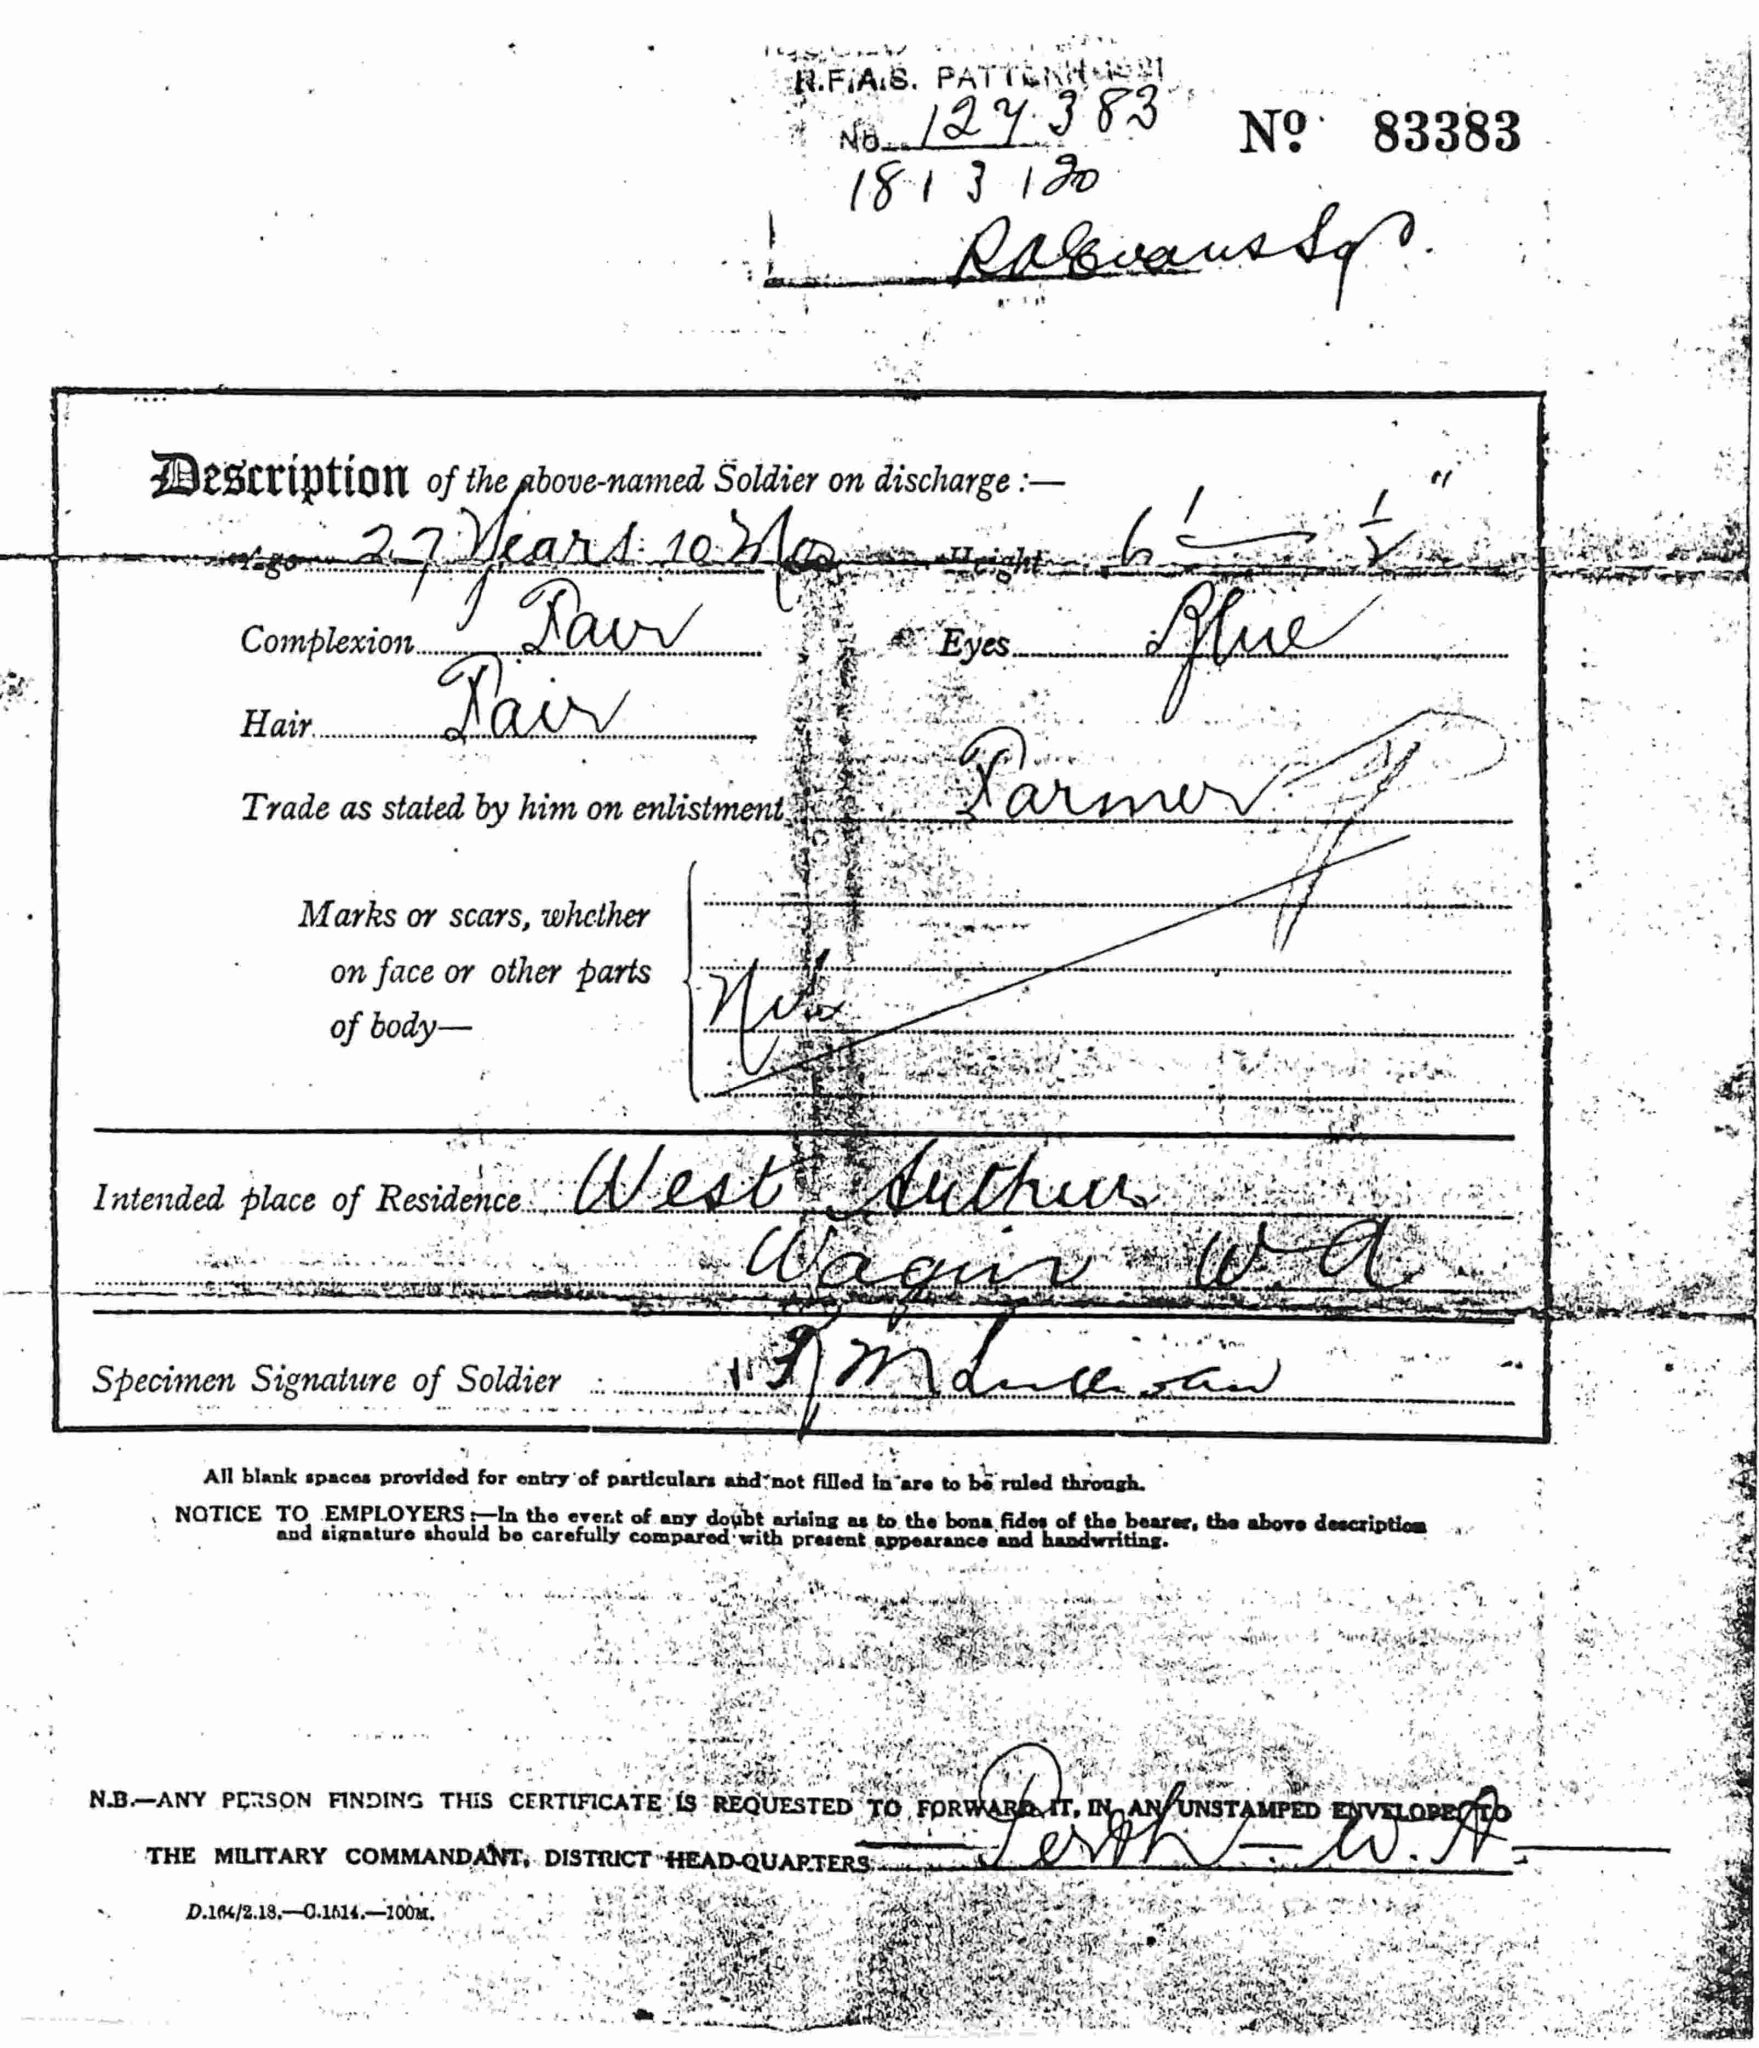 R.F.A.S. PATTERN
No. 127383
Nº 83383
18/3/20
Evans Sgt.
Description of the above-named Soldier on discharge :—
Age 27 Years 10 Mos Height 6' — ½"
Complexion Fair Eyes Blue
Hair Fair
Trade as stated by him on enlistment Farmer
Marks or scars, whether
on face or other parts
of body—
Nil
Intended place of Residence West Arthur
Wagin W.A.
Specimen Signature of Soldier M Sullivan
All blank spaces provided for entry of particulars and not filled in are to be ruled through.
NOTICE TO EMPLOYERS :—In the event of any doubt arising as to the bona fides of the bearer, the above description
and signature should be carefully compared with present appearance and handwriting.
N.B.—ANY PERSON FINDING THIS CERTIFICATE IS REQUESTED TO FORWARD IT, IN AN UNSTAMPED ENVELOPE, TO
THE MILITARY COMMANDANT, DISTRICT HEAD-QUARTERS Perth — W. A.
D.164/2.18.—C.1514.—100M.